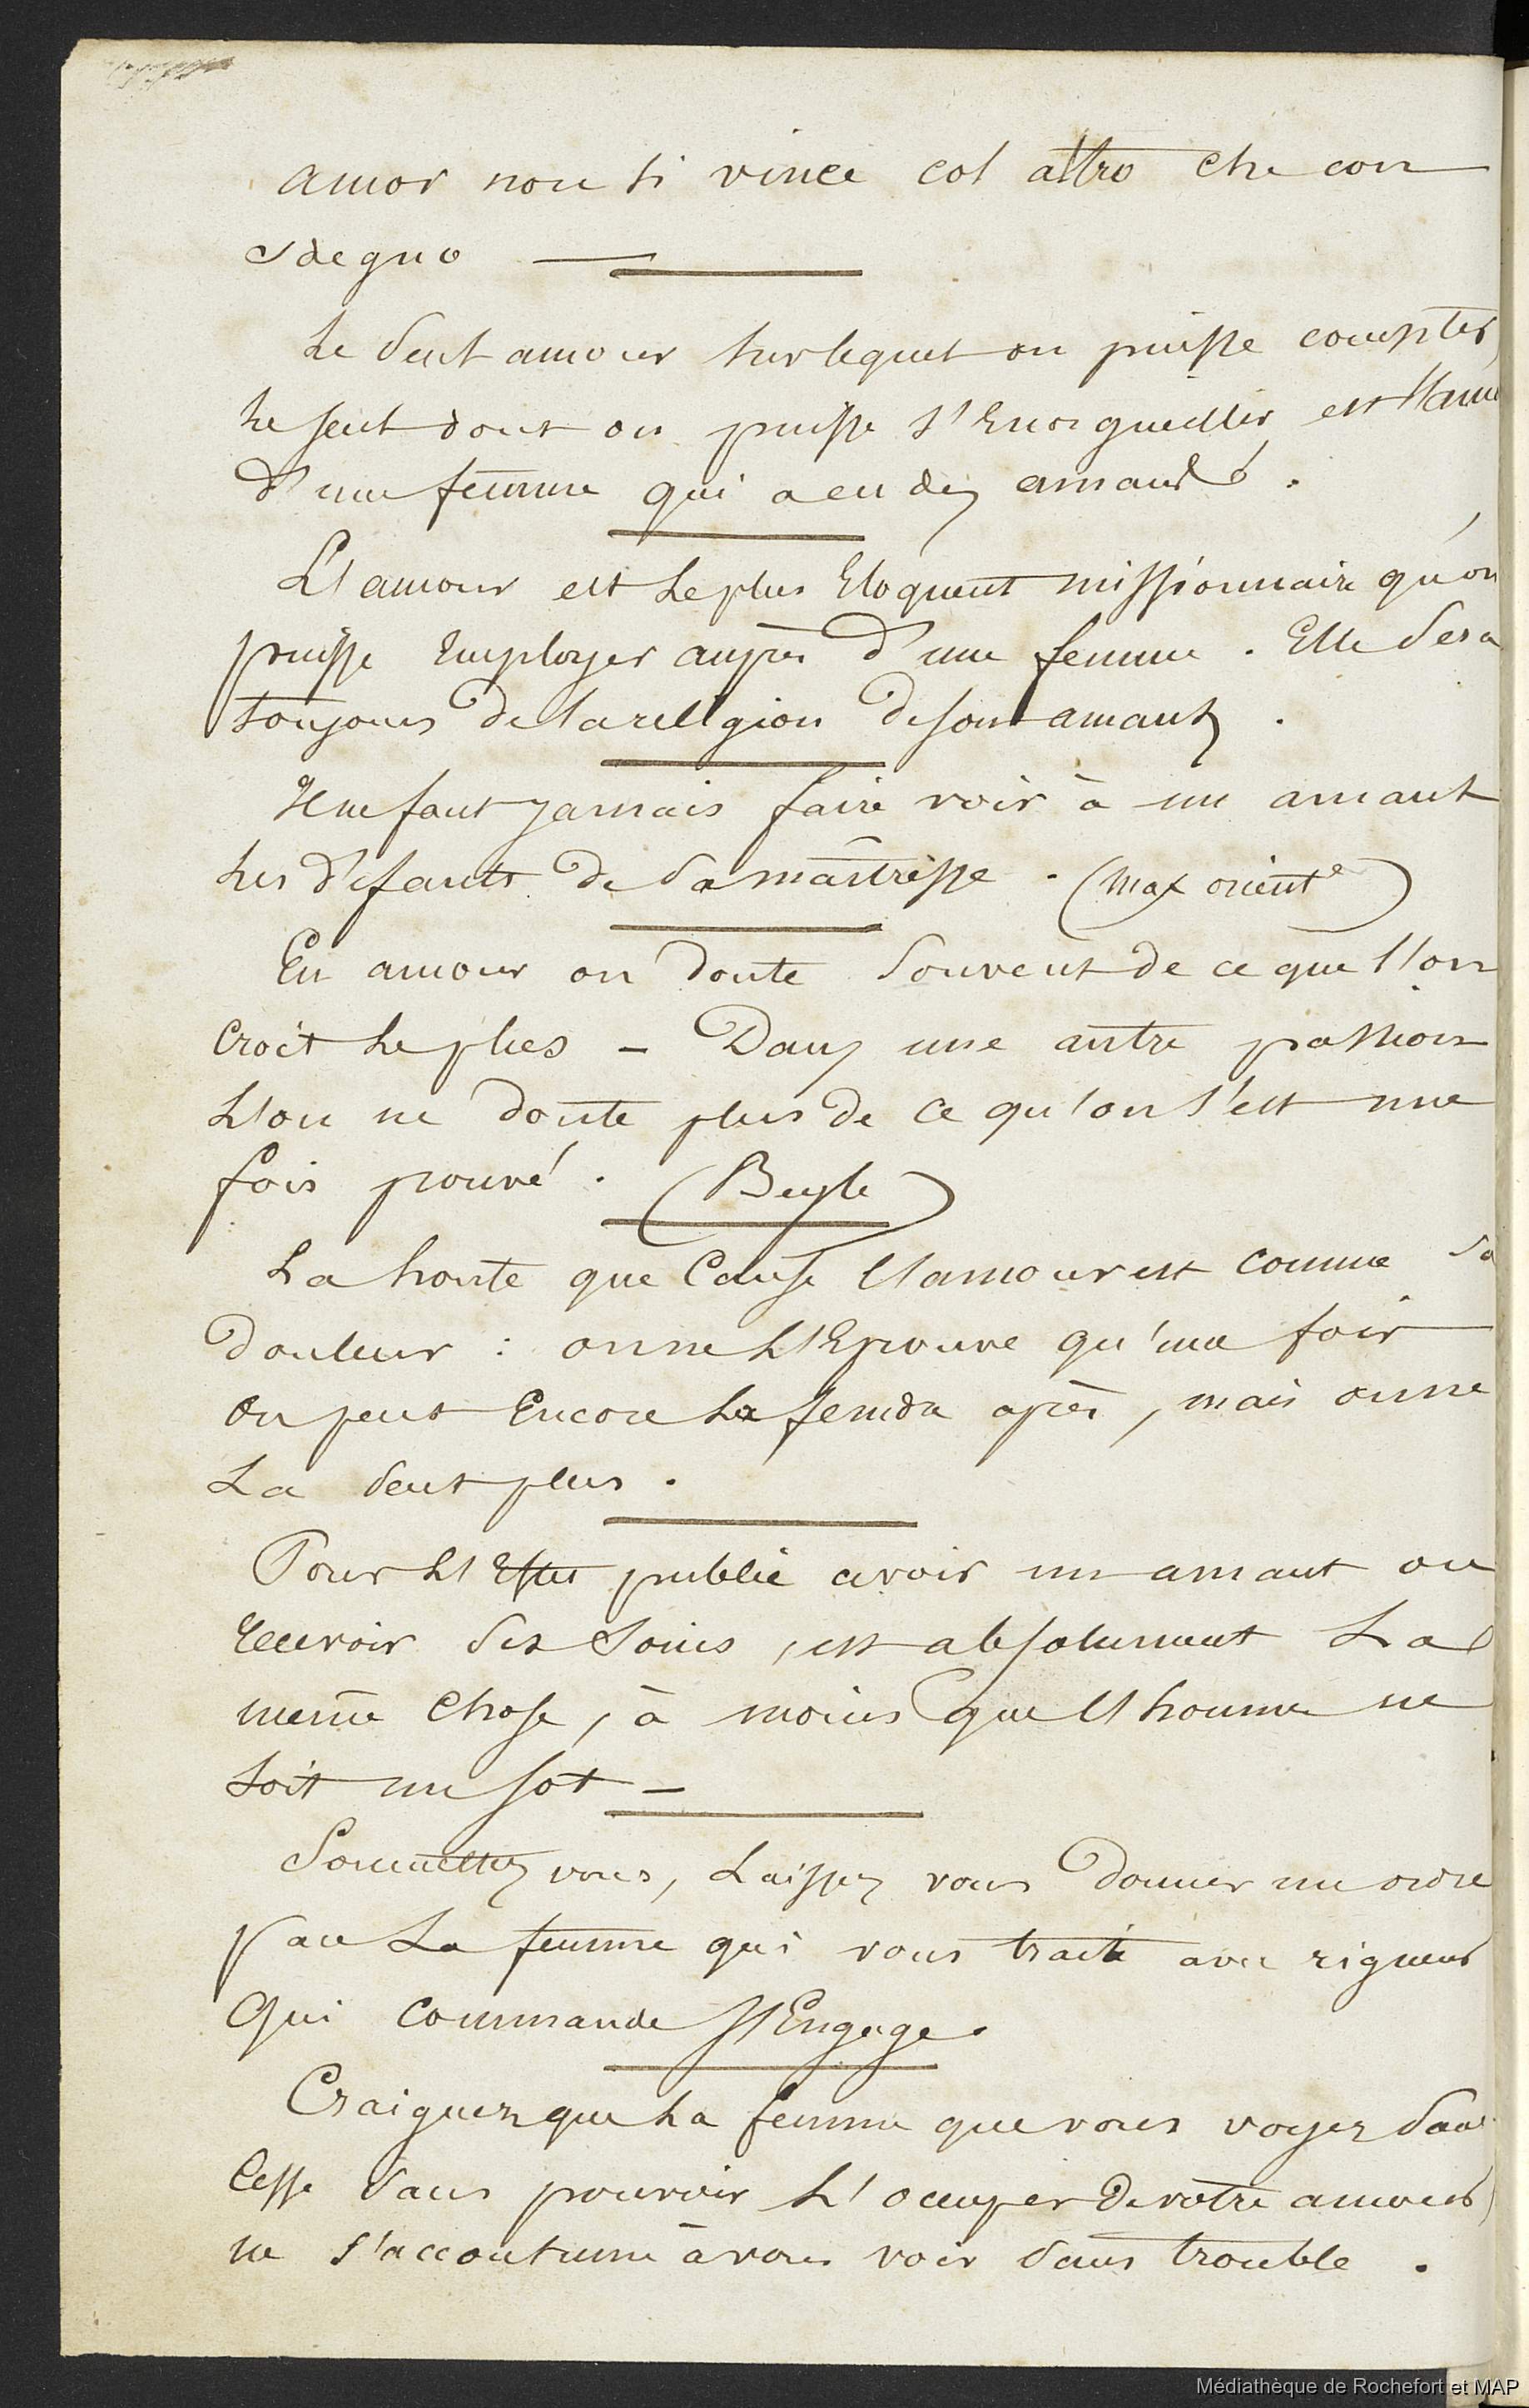 amor non si vince col altro che con
sdegno
Le seul amour sur lequel on puisse compter,
le seul dont on puisse s'enorgueillir est l'am
d'une femme qui a eu des amants.
L'amour est le plus Eloquent missionnaire qu'on
puisse Employer auprès d'une femme. Elle sera
toujours de la religion de son amant.
Il ne faut jamais faire voir à un amant
les défauts de sa maîtresse. (Max orient)
En amour on doute souvent de ce que l'on
croit le plus – Dans une autre passion
L'on ne doute plus de ce qu'on s'est une
fois prouvé. (Beyle)
La honte que cause l'amour est comme sa
douleur : on ne l'Eprouve qu'une fois
on peut Encore la feindre après, mais on ne
La sent plus.
Pour le public avoir un amant ou
recevoir ses soins, est absolument La
même chose, à moins que l'homme ne
soit un sot –
Soumettez vous, Laissez vous donner un ordre
par La femme qui vous traite avec rigueur
Qui commande s'Engage.
Craignez que La femme que vous voyez sans
cesse sans pouvoir L'occuper de votre amour,
ne s'accoutume à vous voir sans trouble.
Médiathèque de Rochefort et MAP